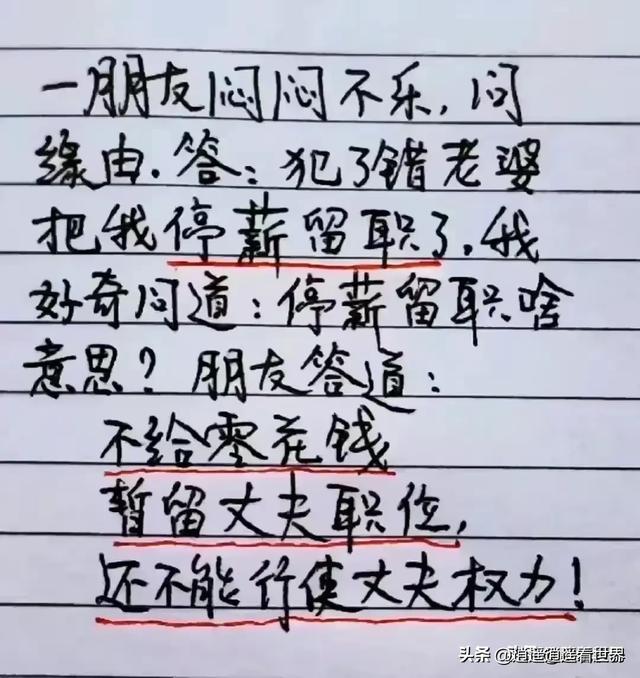 一朋友闷闷不乐，问
缘由.答：犯了错老婆
把我停薪留职了，我
好奇问道：停薪留职啥
意思？朋友答道：
不给零花钱
暂留丈夫职位，
还不能行使丈夫权力！
头条 @逍遥逍遥看世界